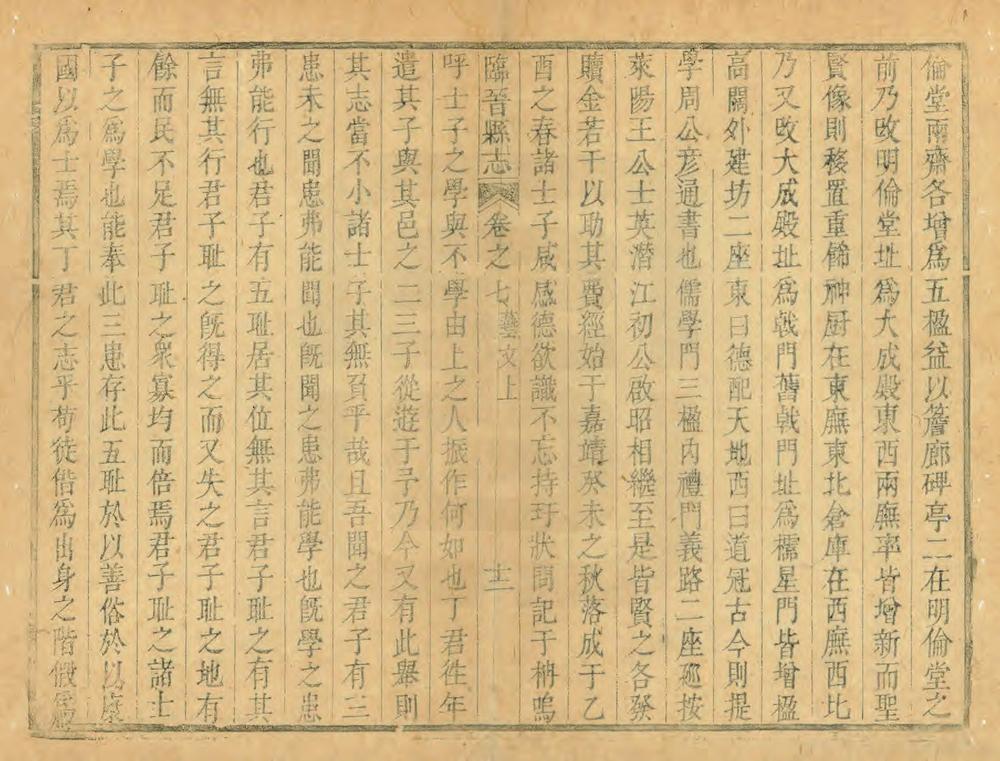 倫堂兩齋各增爲五楹益以簷廊碑亭二在明倫堂之
前乃改明倫堂址爲大成殿東西兩廡率皆增新而聖
賢像則移置重餙神厨在東廡東北倉庫在西廡西北
乃又改大成殿址爲戟門舊戟門址爲櫺星門皆增楹
高闊外建坊二座東曰德配天地西曰道冠古今則提
學周公彦通書也儒學門三楹内禮門義路二座廵按
萊陽王公士英潛江初公啟昭相繼至是皆賢之各發
贖金若干以助其費經始于嘉靖癸未之秋落成于乙
酉之春諸士子咸感德欲識不忘持玗狀問記于柟嗚
臨晉縣志 卷之七 藝文上 十二
呼士子之學與不學由上之人振作何如也丁君徃年
遣其子與其邑之二三子從遊于予乃今又有此舉則
其志當不小諸士子其無負乎哉且吾聞之君子有三
患未之聞患弗能聞也旣聞之患弗能學也旣學之患
弗能行也君子有五耻居其位無其言君子耻之有其
言無其行君子耻之旣得之而又失之君子耻之地有
餘而民不足君子耻之衆寡均而倍焉君子耻之諸士
子之爲學也能奉此三患存此五耻於以善俗於以康
國以爲士焉其丁君之志乎苟徒偕爲出身之階假爲